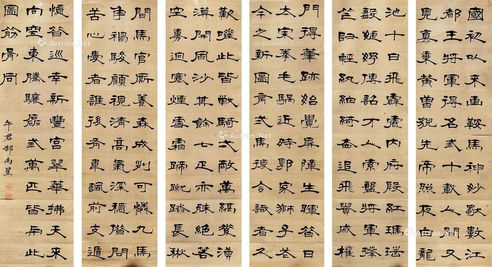 國初以來畫鞍馬神妙獨數江
都王將軍得名三十載人間又
見真乘黃曾貌先帝照夜白龍
池十日飛霹靂內府殷紅瑪瑙
盤婕妤傳詔才人索盤賜將軍
拜舞歸輕紈細綺相追飛貴戚權
門得筆跡始覺屏障生光輝昔日
太宗拳毛騧近時郭家獅子花
今之新圖有二馬復令識者久
歎嗟此皆騎戰一敵萬縞素漠
漠開風沙其餘七匹亦殊絕迥若寒
空動煙雪霜蹄蹴踏長楸
間馬官廝養森成列可憐九馬
爭神駿顧視清高氣深穩借問
苦心愛者誰後有韋諷前支遁
憶昔巡幸新豐宮翠華拂天來
向東騰驤磊落三萬匹皆與此
圖筋骨同
午君